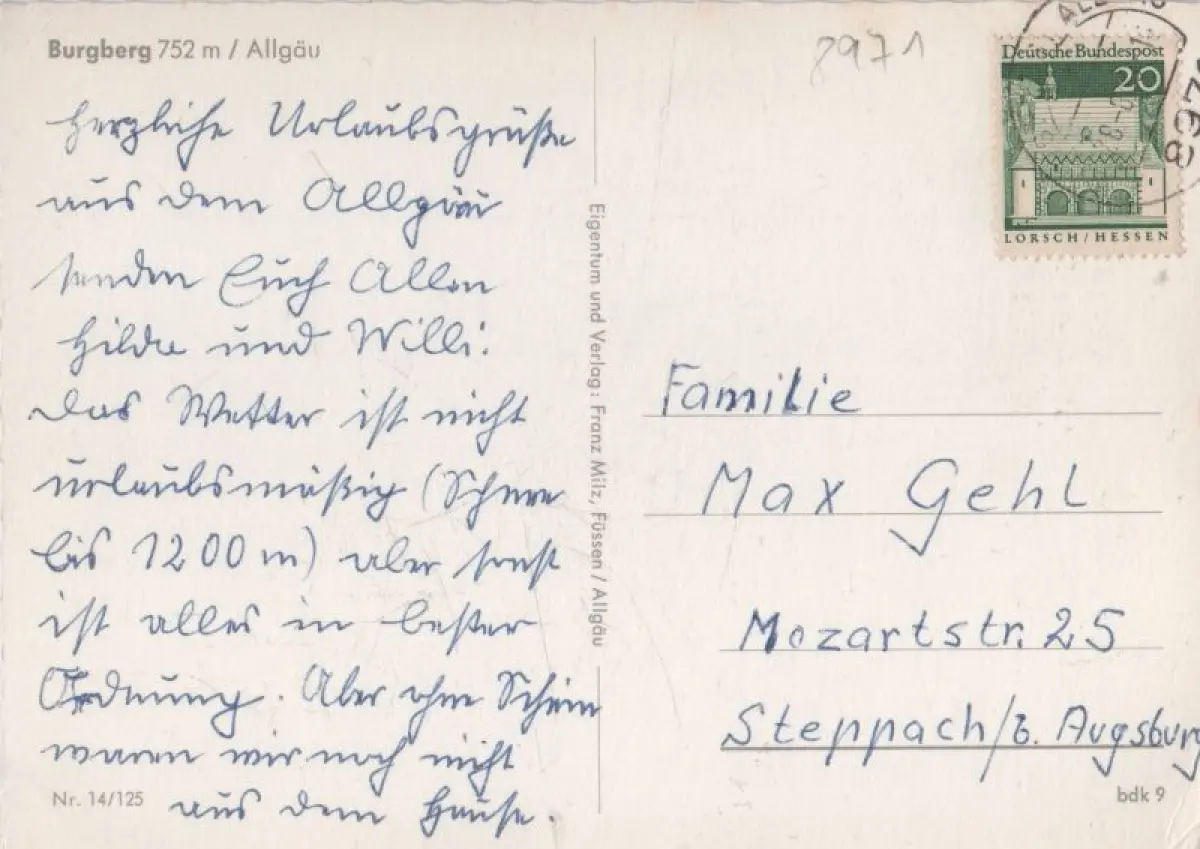 Burgberg 752 m / Allgäu
8971
Deutsche Bundespost
20
LORSCH / HESSEN
Herzliche Urlaubsgrüße
aus dem Allgäu
senden Euch Allen
Hilde und Willi.
Das Wetter ist nicht
urlaubsmäßig (Schnee
bis 1200 m) aber sonst
ist alles in bester
Ordnung. Aber ohne Schirm
waren wir noch nicht
aus dem Hause.
Nr. 14/125
Eigentum und Verlag: Franz Milz, Füssen / Allgäu
Familie
Max Gehl
Mozartstr. 25
Steppach/b. Augsburg
bdk 9